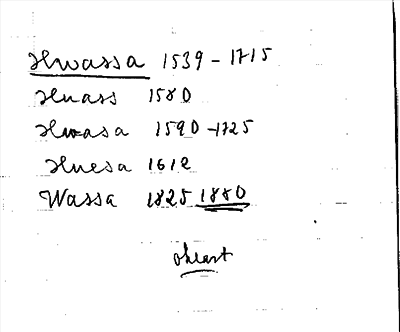 Huassa 1539-1715
Huass 1580
Huasa 1590-1725
Huesa 1612
Wassa 1825 1880